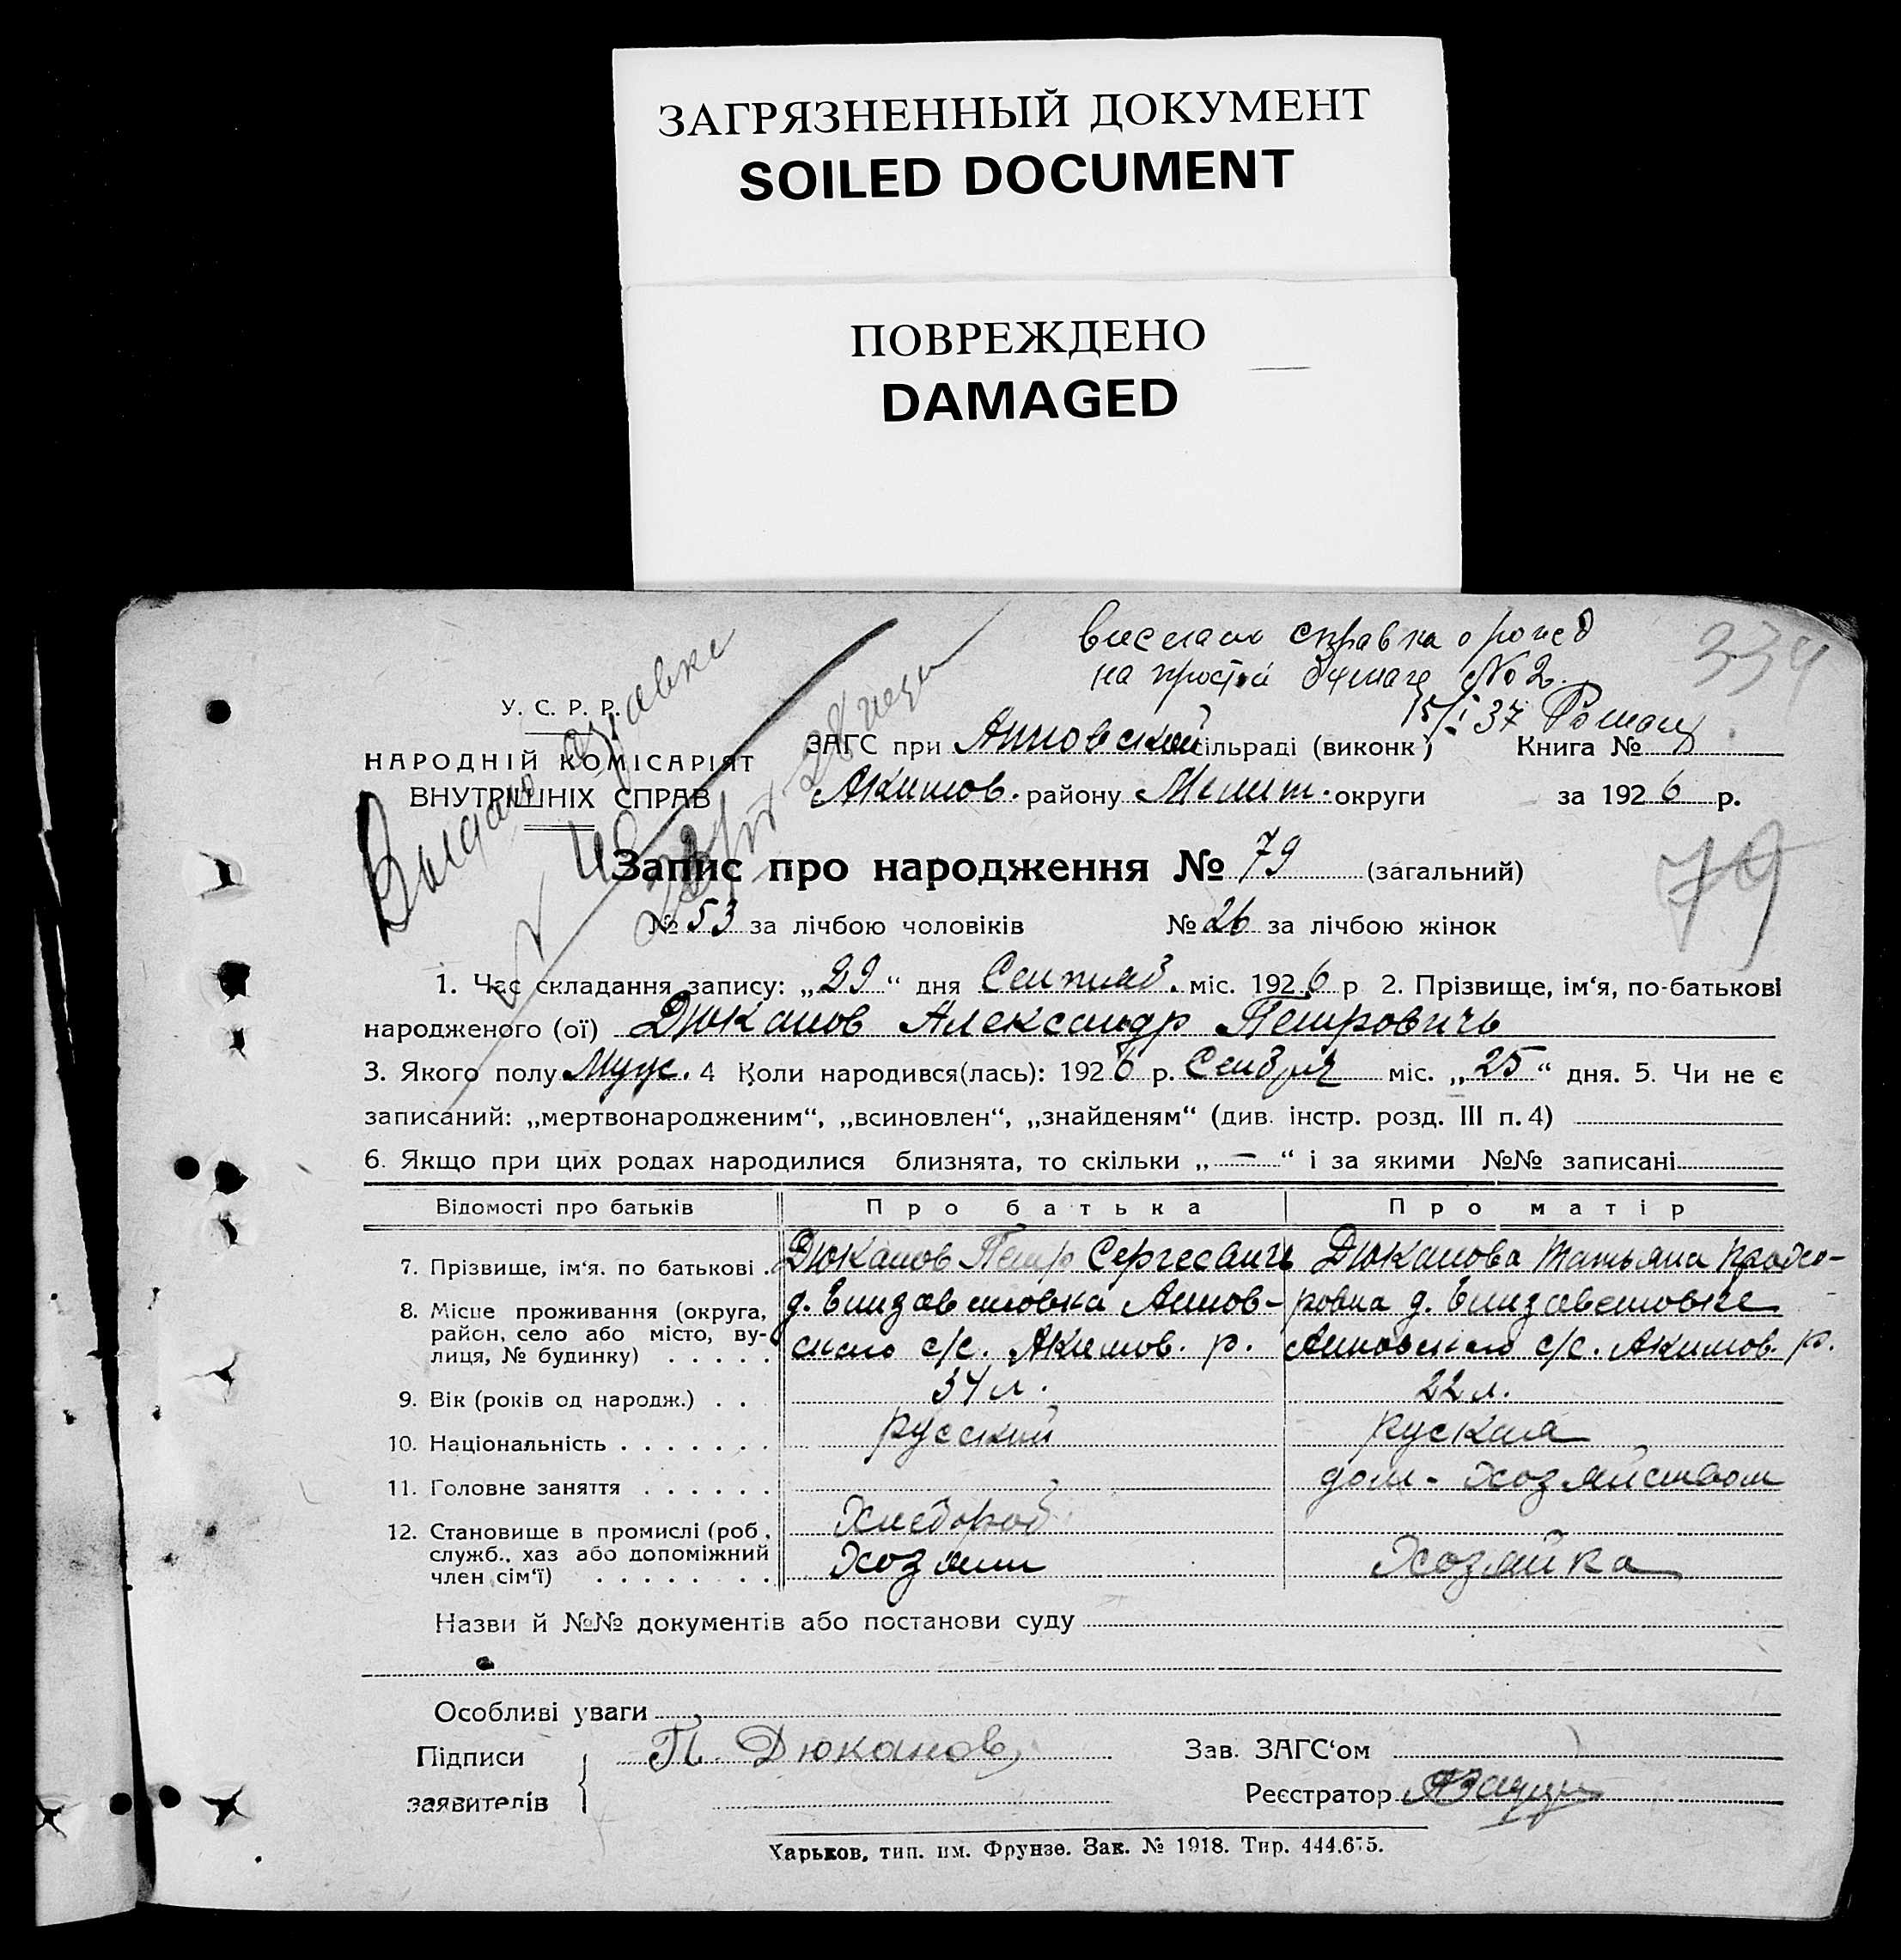 ЗАГРЯЗНЕННЫЙ ДОКУМЕНТ
SOILED DOCUMENT
ПОВРЕЖДЕНО
DAMAGED
334
справка о рожед
на простой бумаге № 2.
15/I 37
У. С. Р. Р.
НАРОДНІЙ КОМІСАРІЯТ
ВНУТРІШНІХ СПРАВ
Выдано
ЗАГС при Анновской сільраді (виконк) Книга №
Акимов. району Мелит. округи за 1926 р.
Запис про народження № 79 (загальний)
79
№ 53 за лічбою чоловіків № 26 за лічбою жінок
1. Час складання запису: „29“ дня Сентяб. міс. 1926 р 2. Прізвище, ім‘я, по-батькові
народженого (ої) Дюканов Александр Петровичь
3. Якого полу Муж. 4 Коли народився(лась): 1926 р. міс. „25“ дня. 5. Чи не є
записаний: „мертвонародженим“, „всиновлен“, „знайденям“ (див. інстр. розд. III п. 4)
6. Якщо при цих родах народилися близнята, то скільки „—“ і за якими №№ записані
Відомості про батьків Про батька Про матір
7. Прізвище, ім‘я. по батькові . Дюканов Петр Сергеевичь Дюканова Татьяна
8. Місце проживання (округа, д. Елизаветовка Аннов- д. Елизаветовке
район, село або місто, ву-
лиця, № будинку) . . . . . ского с/с. Акимов. р. Анновского с/с. Акимов. р.
9. Вік (років од народж.) . . 34 л. 22 л.
10. Національність . . . . . . . русский руская
11. Головне заняття . . . . . . дом- хозяйством
12. Становище в промислі (роб., Хлебороб
служб., хаз або допоміжний
член сім‘ї) . . . . . . . . Хозяин Хозяйка
Назви й №№ документів або постанови суду
Особливі уваги
Підписи П. Дюканов Зав. ЗАГС‘ом
заявителів Реєстратор
Харьков, тип. им. Фрунзе. Зак. № 1918. Тир. 444.675.